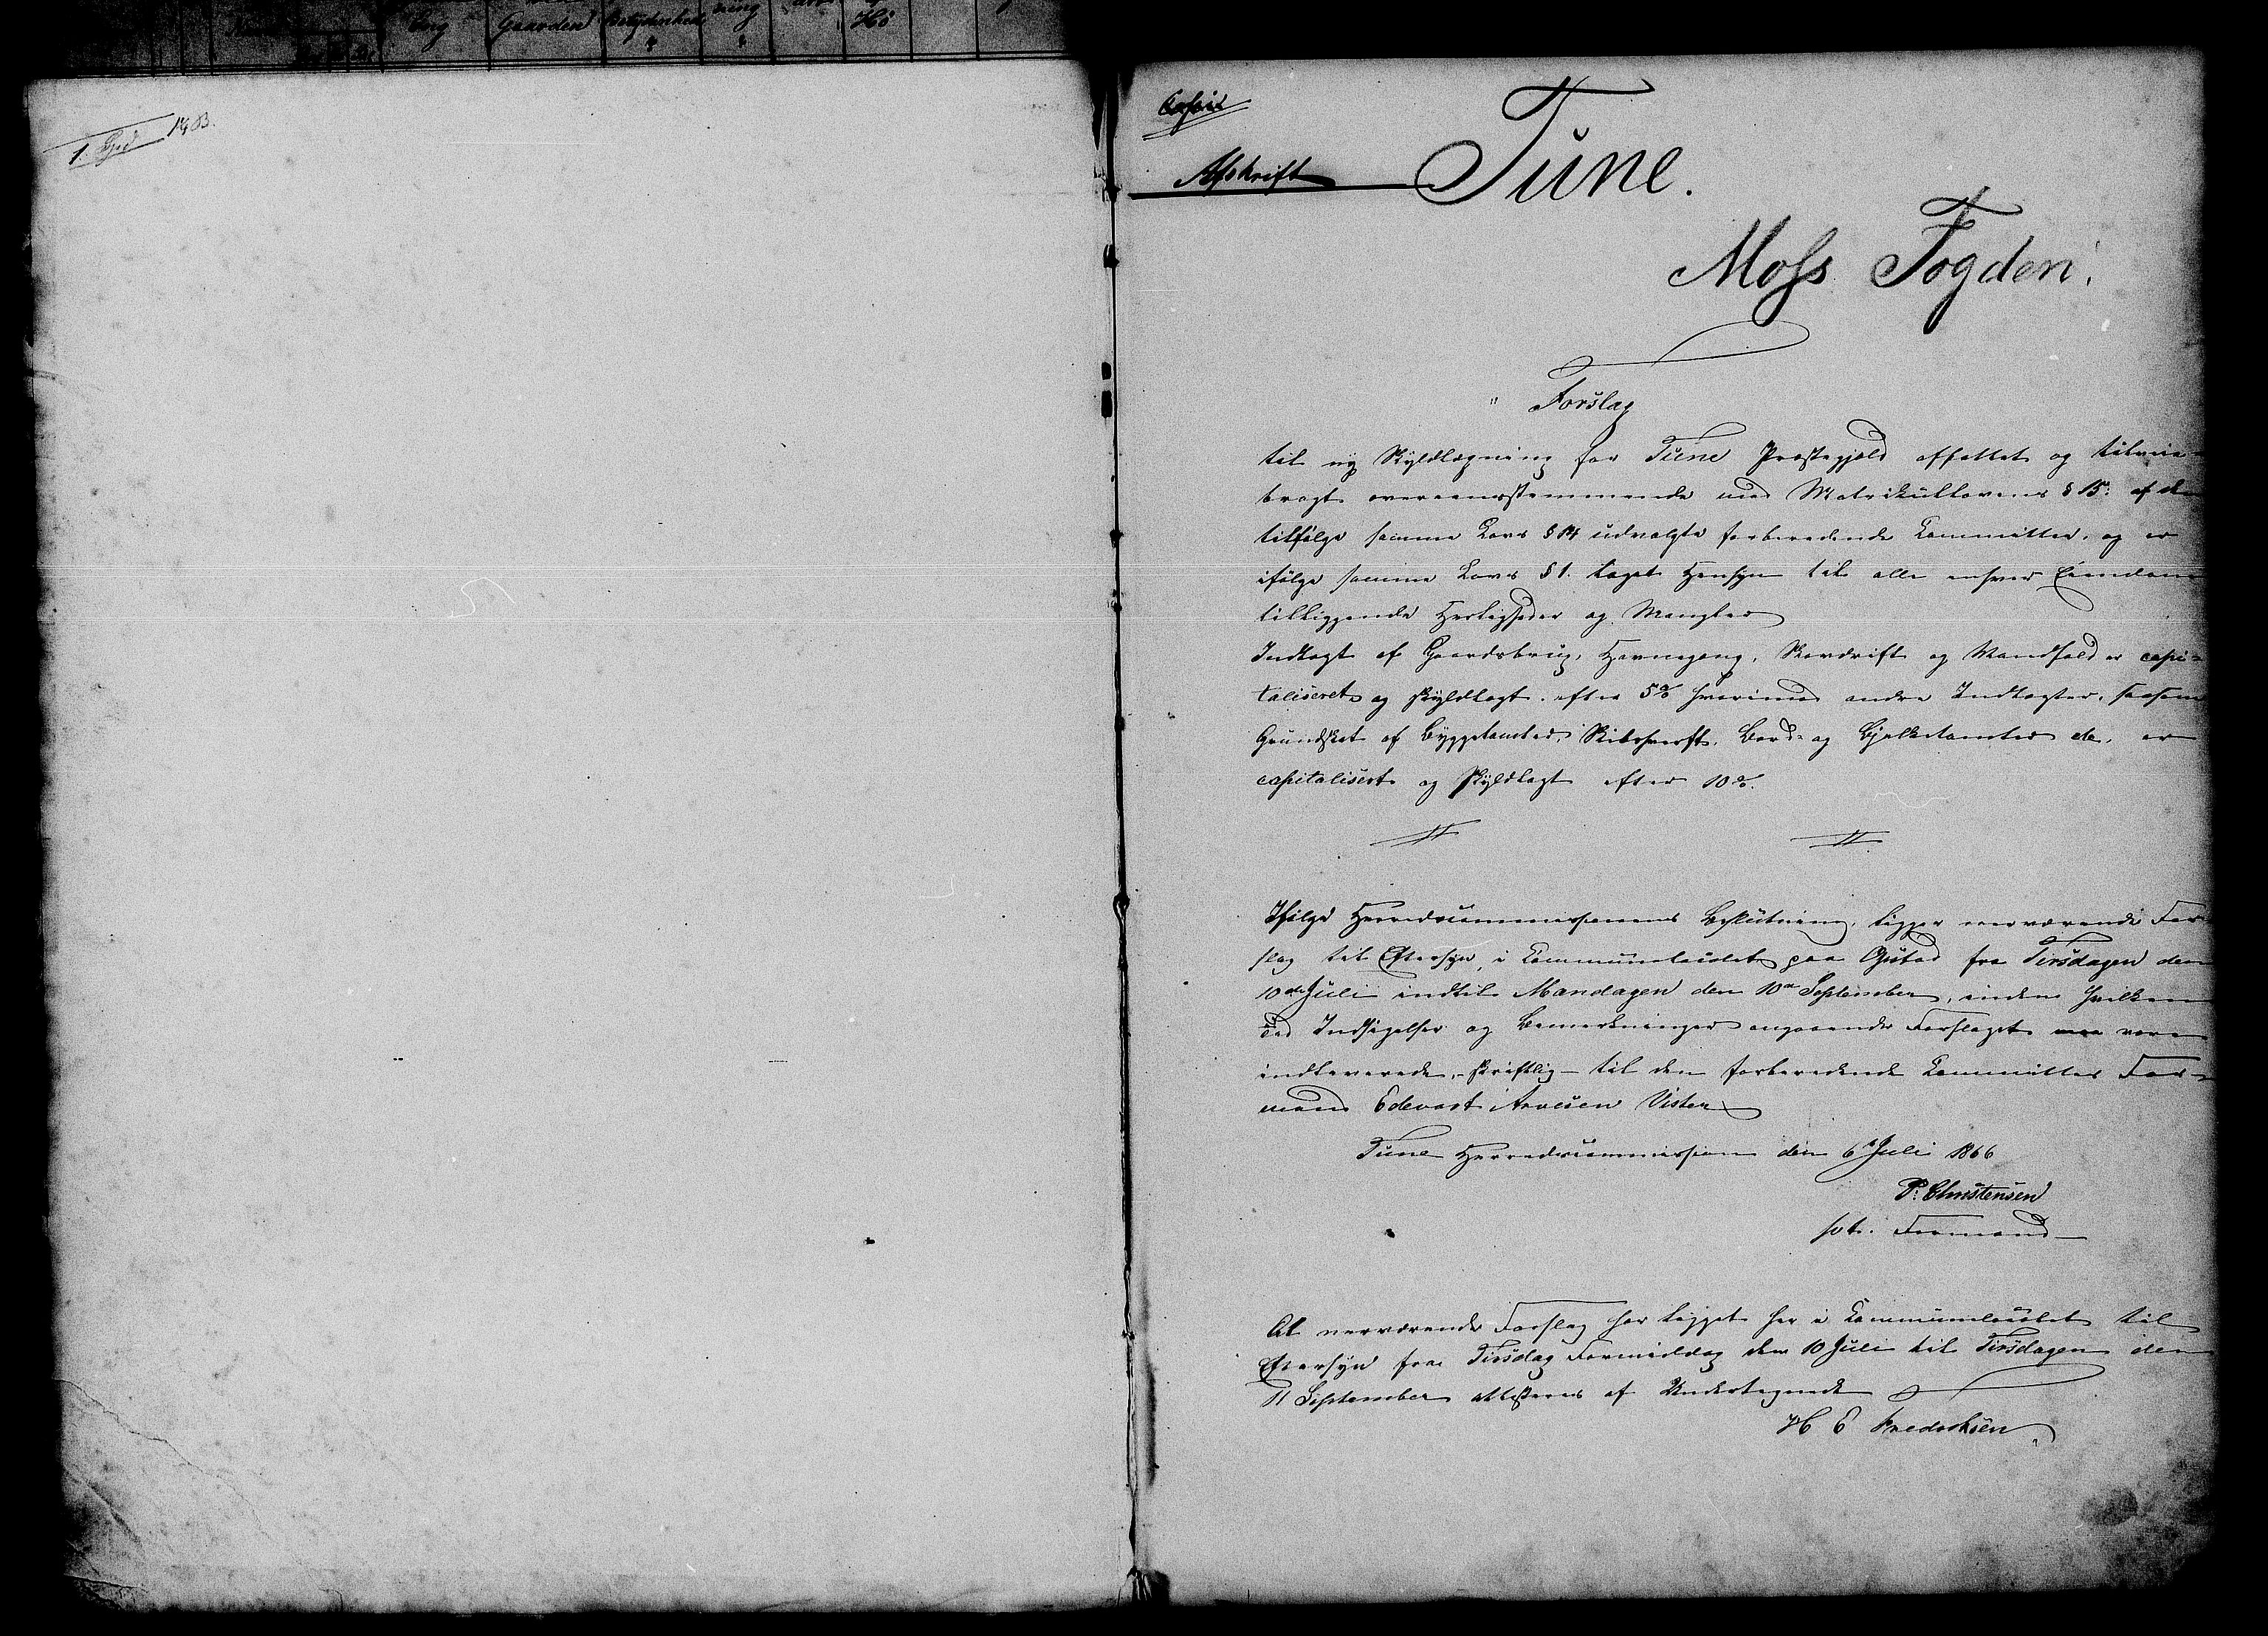 borg Gaarden Betydenhed ning Hö
1. Gjd 1903.
Copie
Tune.
Afskrift
Moss Fogderi.
Forslag
til ny Skyldlægning for Tune Præstegjeld affattet og tilveie-
bragt overeensstemmende med Matrikullovens § 15. af den
tilfølge samme Lovs § 14 udvalgte forberedende Committee, og er
ifølge samme Lovs § 1. taget Hensyn til alle enhver Eiendom
tilliggende Herligheder og Mangler
Indtægt af Gaardsbrug, Havnegang, Skovdrift og Vandfald er capi-
taliseret og skyldlagt efter 5% hvorimod andre Indtægter, saasom
Grundskat af Byggetomter, Skibsverft, Bord- og Bjelketomter etc. er
capitalisert og skyldlagt efter 10%.
Ifølge Herredscommissionens Beslutning, ligger nerværende For-
slag til Eftersyn, i Communelocalet paa Opstad fra Tirsdagen den
10de Juli indtil Mandagen den 10de September, inden hvilken
Tid Indsigelser og Bemærkninger angaaende Forslaget maa være
indleverede, - skriftlig - til den forberedende Committes For-
mand Edevart Arvesen Vister
Tune Herredscommission den 6 Juli 1866
P. Christensen
sbt. Formand
At nerværende Forslag har ligget her i Communelocalet til
Eftersyn fra Tirsdag Formiddag den 10 Juli til Tirsdagen den
11 September attesteres af Undertegnede
H E Fredriksen